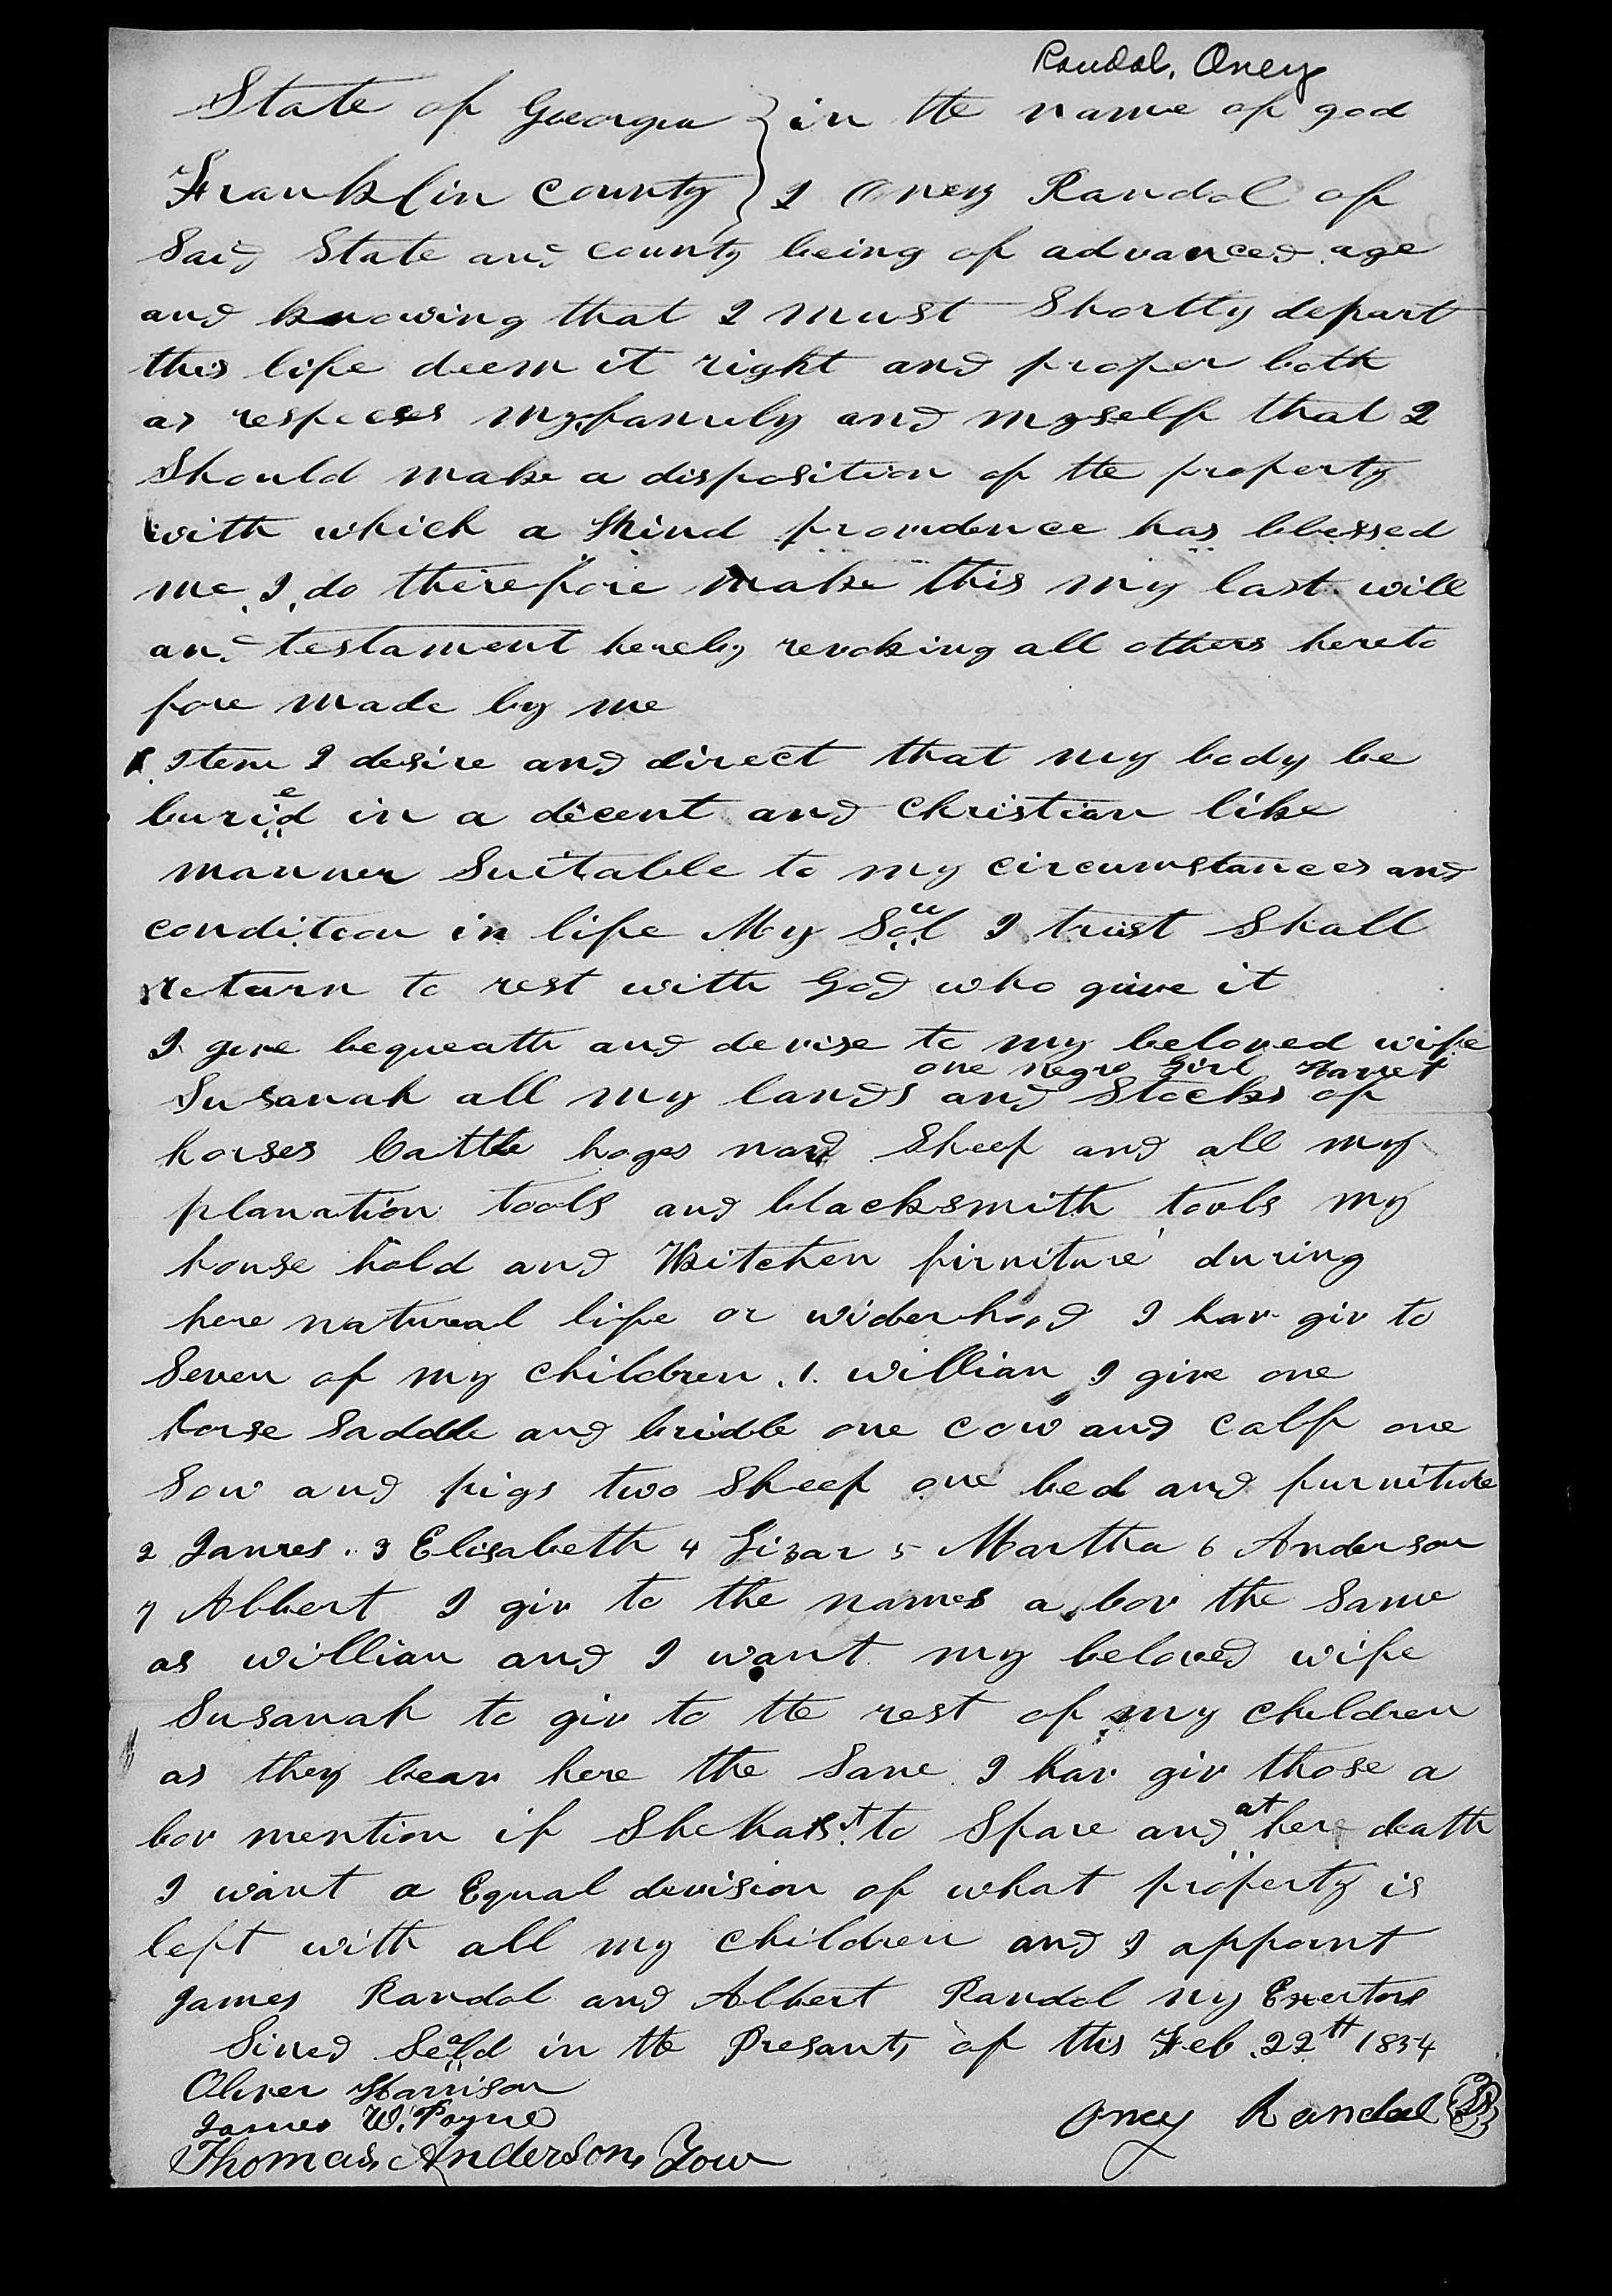 Randal, Oney
State of Georgia } in the name of god
Franklin County } I Oney Randal of
Said State and County being of advanced age
and knowing that I must Shortly depart
this life deem it right and proper both
as respects my family and myself that I
Should make a disposition of the property
with which a Kind providence has blessed
me I do therefore make this my last will
and testament hereby revoking all others hereto
fore made by me
1 Item I desire and direct that my body be
buried in a decent and Christian like
manner Suitable to my circumstances and
condition in life My Soul I trust Shall
return to rest with God who give it
I give bequeath and devise to my beloved wife
one negro Girl Harret
Susanah all my lands and Stocks of
horses Cattle hoges Sheep and all my
planation tools and blacksmith tools my
house hold and Kitchen firniture during
here natureal life or widerhood I hav giv to
Seven of my children .1. willian I give one
horse Saddle and bridle one cow and calf one
Sow and pigs two Sheep one bed and furniture
2 James . 3 Elisabeth 4 Lizar 5 Martha 6 Anderson
7 Albert I giv to the names a bov the Same
as willian and I want my beloved wife
Susanah to giv to the rest of my children
as they leav here the Sane I hav giv those a
bov mention if She has it to Spare and at her death
I want a Equal devision of what property is
left with all my children and I appoint
James Randal and Albert Randal my Exertors
Sined Seald in the Presants of this Feb. 22th 1854
Oliver Harrison
James W. Payne
Oney Randal
Thomas Anderson Yow